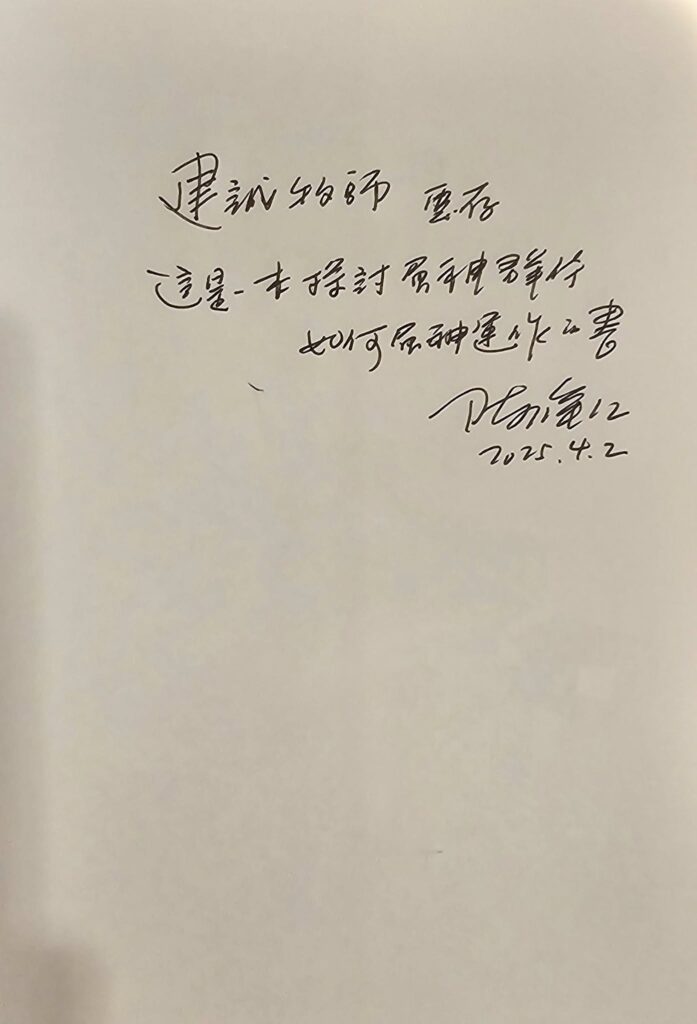 建誠牧師 惠存
這是一本探討屬神群體
如何屬神運作之書
陳維仁
2025.4.2